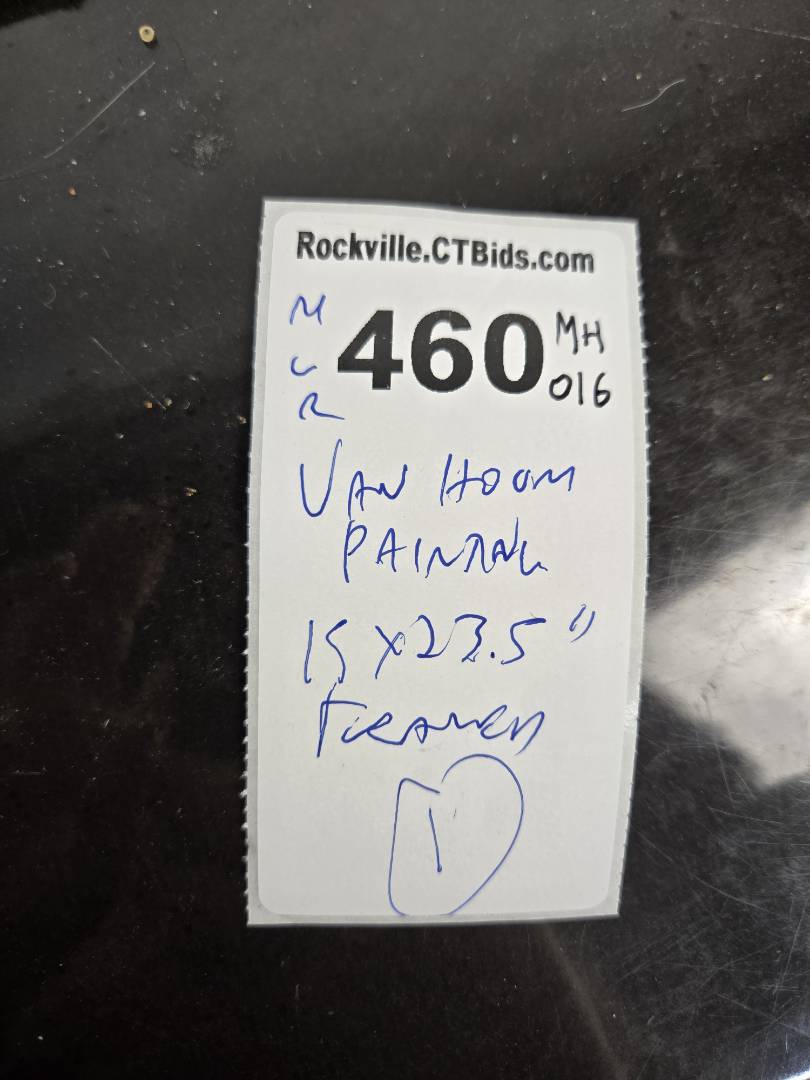 Rockville.CTBids.com
MCR
460
MH
016
VAN HOOM
PAINTING
15 x 23.5"
FRAMED
1